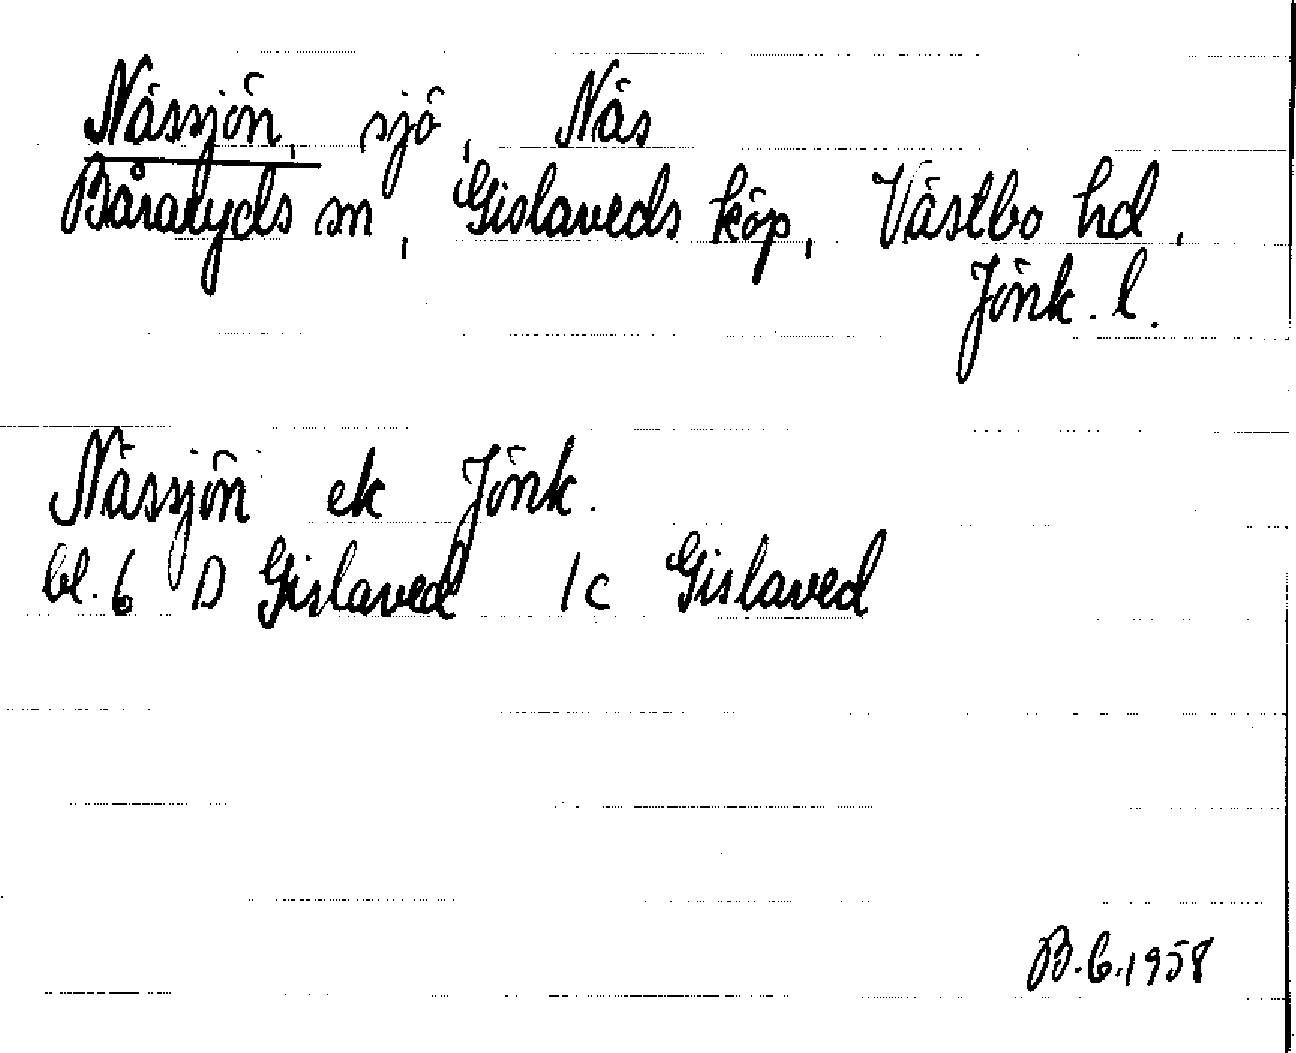 Nässjön, sjö, Näs
Båraryds sn, Gislaveds köp, Västbo hd,
Jönk. l.
Nässjön ek Jönk.
bl. 6 D Gislaved 1c Gislaved
B.G.1958